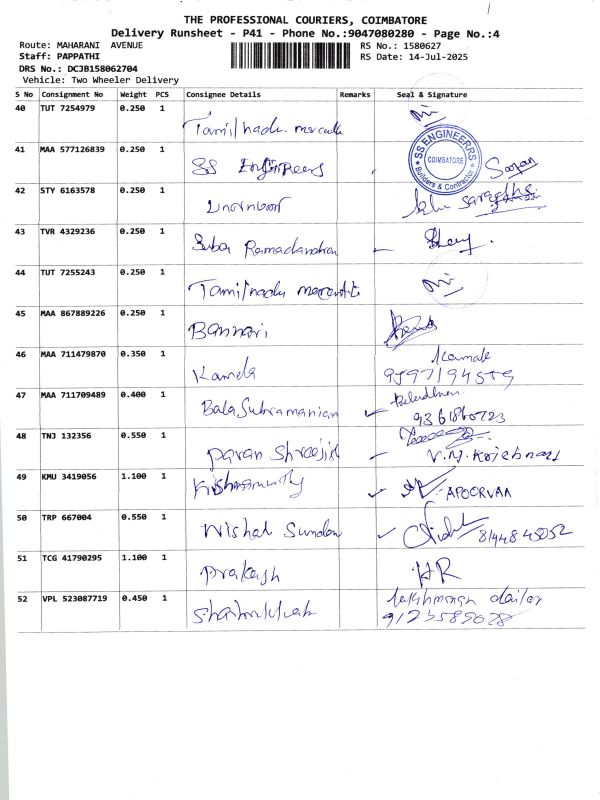 THE PROFESSIONAL COURIERS, COIMBATORE
Delivery Runsheet - P41 - Phone No.:9047080280 - Page No.:4
Route: MAHARANI AVENUE RS No.: 1580627
Staff: PAPPATHI RS Date: 14-Jul-2025
DRS No.: DCJB158062704
Vehicle: Two Wheeler Delivery
S No Consignment No Weight PCS Consignee Details Remarks Seal & Signature
40 TUT 7254979 0.250 1
Tamilnadu
41 MAA 577126839 0.250 1
SS Engineers
SS ENGINEERRS
COIMBATORE
Builders & Contractor
42 STY 6163578 0.250 1
43 TVR 4329236 0.250 1
Ramachandran
44 TUT 7255243 0.250 1
Tamilnadu
45 MAA 867889226 0.250 1
Bannari
46 MAA 711479870 0.350 1
Kamala Kamale
47 MAA 711709489 0.400 1
BalaSubramanian
9361860723
48 TNJ 132356 0.550 1
V.M. Krishnan
49 KMU 3419056 1.100 1
Krishnamurthy APOORVAA
50 TRP 667004 0.550 1
Vishal 8144845052
51 TCG 41790295 1.100 1
prakash HR
52 VPL 523087719 0.450 1